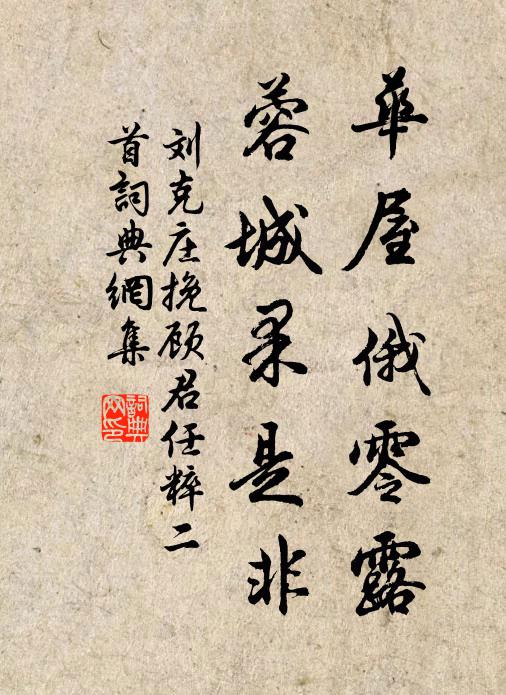 華屋俄零露
蓉城果是非
刘克庄挽顾君任粹二
首詞典網集
詞典網印